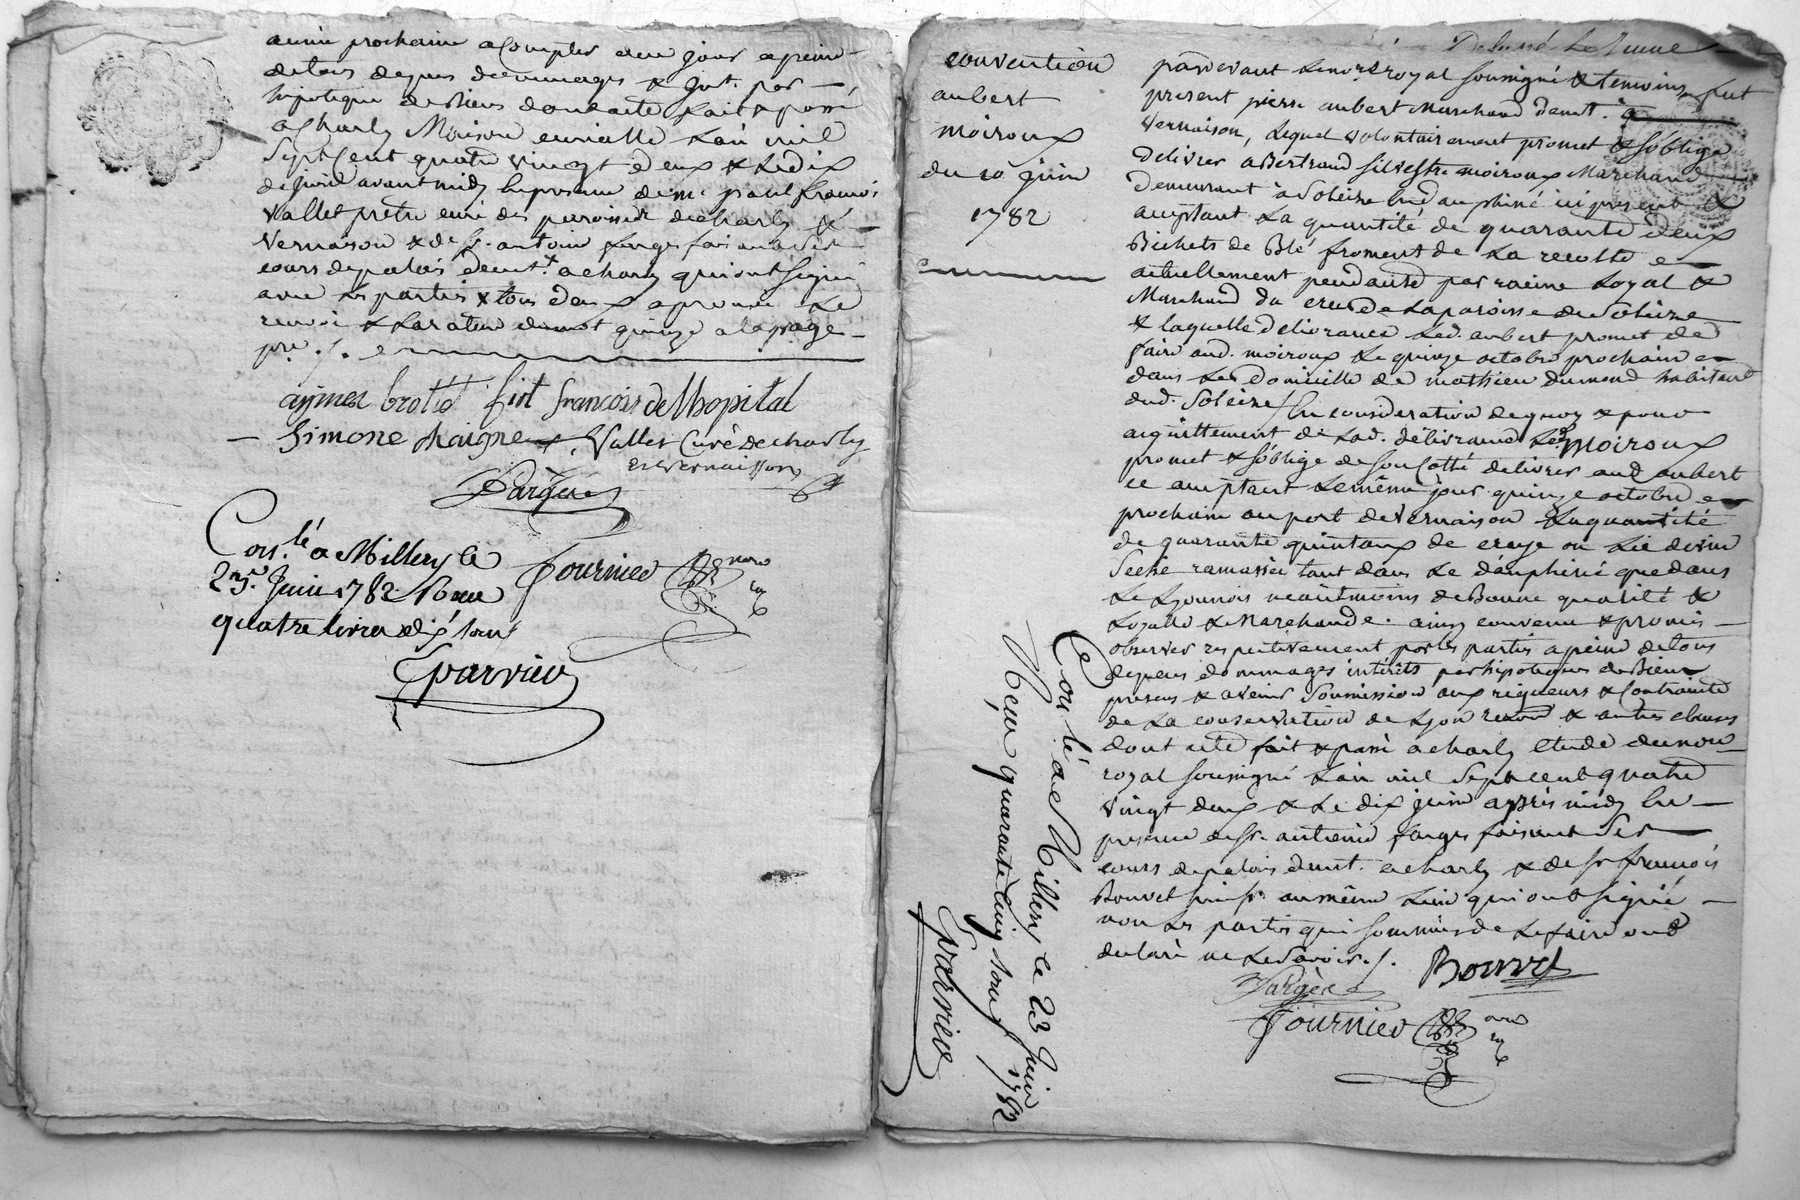 année prochaine a Compter de ce jour a peine
de tous depens dommages & Int. par
hipoteque de Biens dont acte fait & passé
a Charly Maison curialle L'an mil
Sept Cent quatre vingt deux & Le dix
de juin avant midy En presence de mre paul francois
Vallet pretre curé des paroisses de charly &
Vernaison & de Sr. antoine farges faisant Ses
cours de palais demt. a charly qui ont Signé
avec Les parties & tous deux aprouvé Le
renvoi & La rature du mot quinze a la page
pre ./.
aymea brotte fiol francois de Lhopital
Simone chaigne Vallet Curé de charly
Et Vernaisson
Farges
Con.lé a Millery le
23e. Juin 1782. Reçu
quatre livres dix sous
Fournier nore
roy
Parrieu
convention
aubert
moiroux
du 10 juin
1782
pardevant Le nore royal soussigné & temoins fut
present pierre aubert Marchand demt. à
Vernaison, Lequel volontairement promet & s'oblige
delivrer a Bertrand Silvestre moiroux Marchand
demeurant à Soleize En dauphiné ici present &
acceptant La quantité de quarante deux
Bichets de Blé froment de La recolte
actuellement pendante par racine Loyal &
Marchand du cru de La paroisse de Soleize
& laquelle delivrance Led. aubert promet de
faire aud. moiroux Le quinze octobre prochain
dans Le domicille de mathieu dumond habitant
aud. Soleize / En consideration de quoy & pour
acquittement de Lad. délivrance Led. Moiroux
promet & s'oblige de Son Cotté delivrer aud aubert
ce acceptant Le même jour quinze octobre
prochain au port de Vernaison La quantité
de quarante quintaux de craye ou Lie de vin
Seche ramassée tant dans Le dauphiné que dans
Le Lyonnois neantmoins de Bonne qualité &
Loyalle & Marchande. ainsy convenu & promis
observer respectivement par les parties a peine de tous
depens dommages intérêts par hipoteques de Biens
presens & avenir Soumission aux rigueurs & Contrainte
de La conservation de Lyon renon & autres clauses
dont acte fait & passé a charly Etude du nore
royal Soussigné L'an mil Sept cent quatre
vingt deux & Le dix juin après midy En
presence de Sr. antoine farges faisant Ses
cours de palais demt. a charly & de Sr françois
Bouvet aud. au même Lieu qui ont signé
non Les parties qui Sommées de Le faire ont
declaré ne Le Savoir ./. Bouvet
Farges
Fournier nore
roy
Con lé a Millery le 23 Juin 1782
Reçu quarante cinq sous
Parrieu